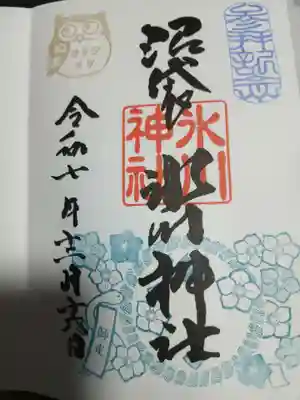 沼袋 氷川神社
氷川
神社
令和七年十二月十六日
師走